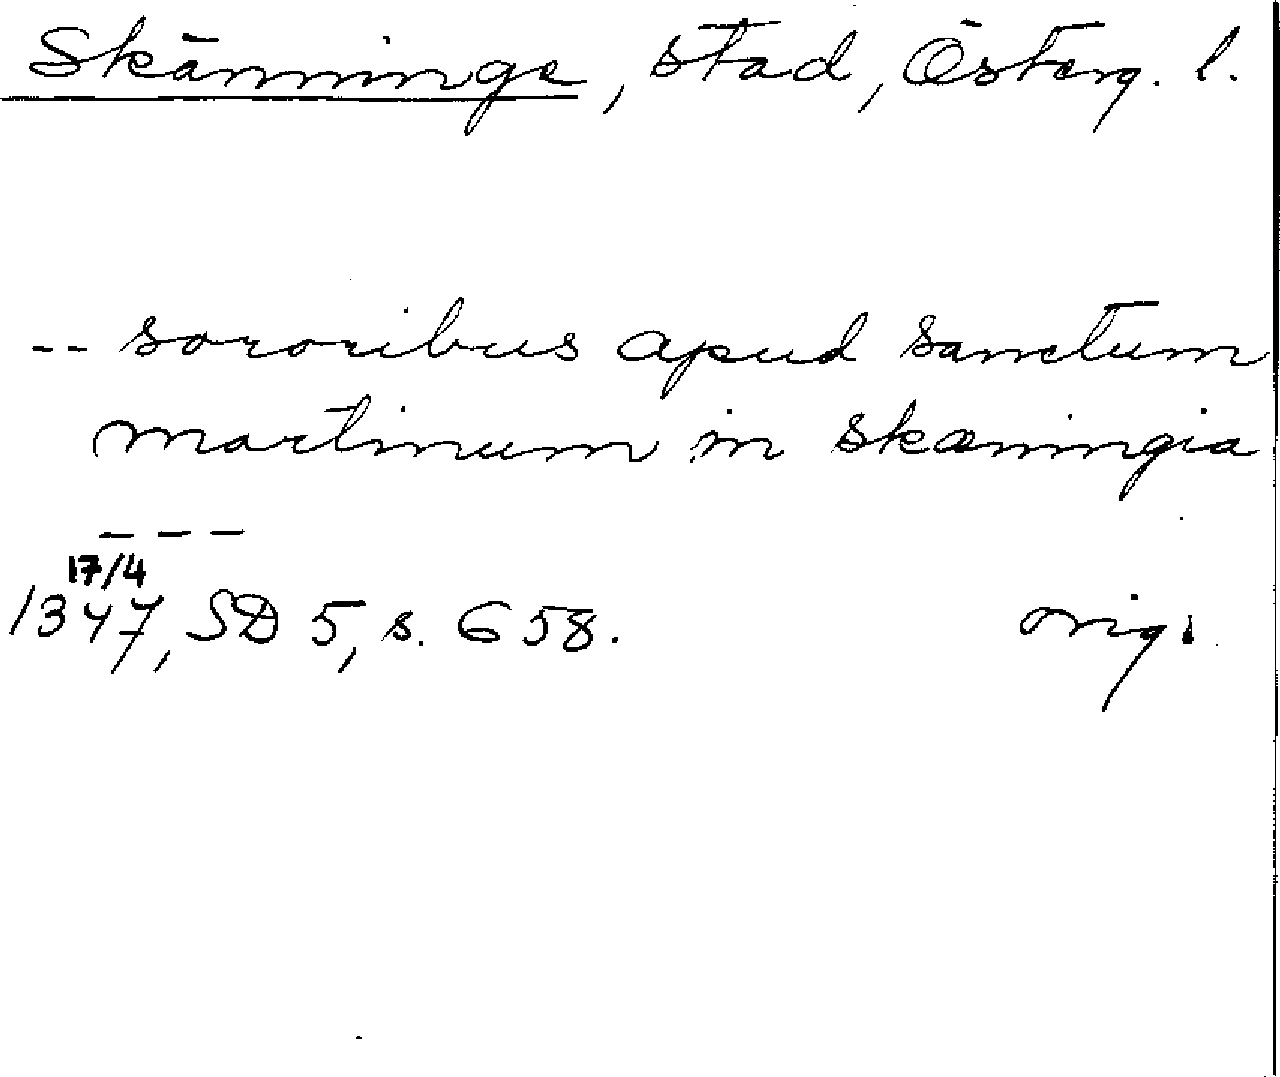 Skänninge, stad, Österg. l.
-- sororibus apud sanctum
martinum in skæningia
---
17/4
1347, SD 5, s. 658. orig.